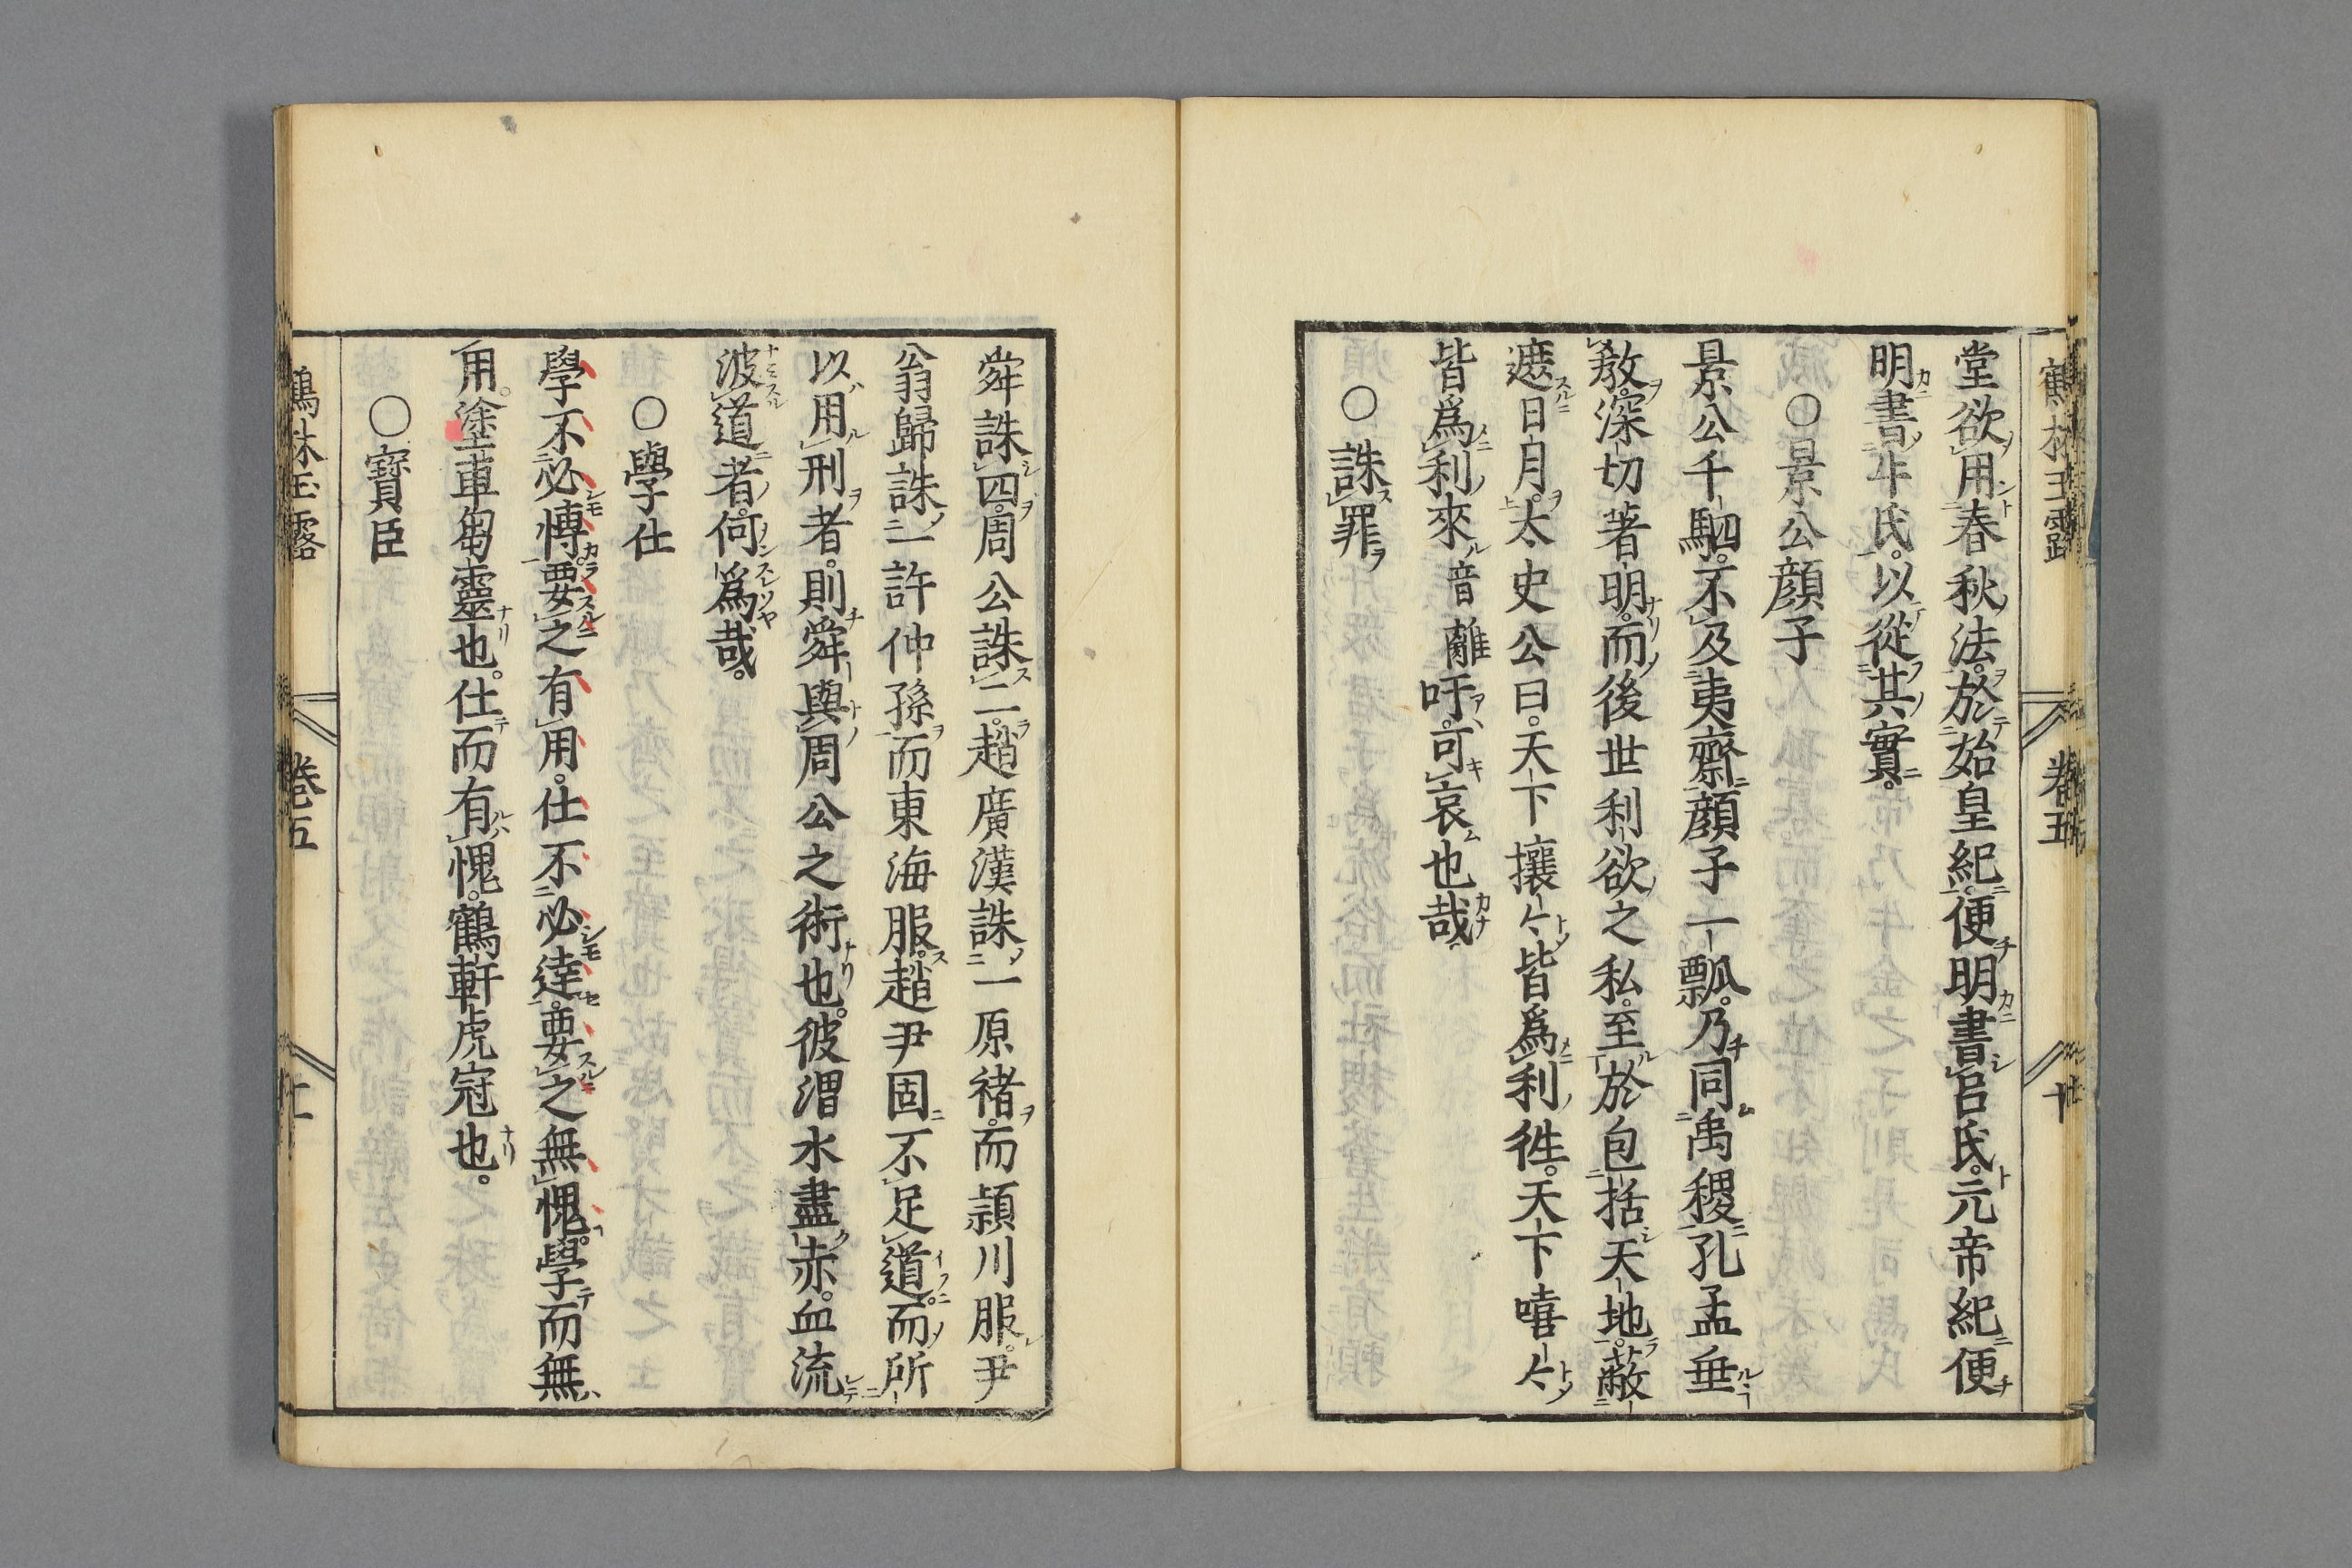 鶴林玉露 卷五 廿
堂欲用春秋法。於始皇紀。便明書呂氏。元帝紀便
明書牛氏。以從其實。
○景公顔子
景公千駟。不及夷齊。顔子一瓢。乃同禹稷。孔孟垂
教。深切著明。而後世利欲之私。至於包括天地。蔽
遮日月。太史公曰。天下攘々皆爲利徃。天下嘻々
皆爲利來音離吁。可哀也哉
○誅罪
舜誅四。周公誅二。趙廣漢誅一原禇。而潁川服。尹
翁歸誅一許仲孫。而東海服。趙尹固不足道。而所
以用刑者。則舜與周公之術也。彼渭水盡赤。血流
波道者。何爲哉。
○學仕
學不必愽。要之有用。仕不必達。要之無愧。學而無
用。塗車芻靈也。仕而有愧。鶴軒虎冠也。
○寳臣
鶴林玉露 卷五